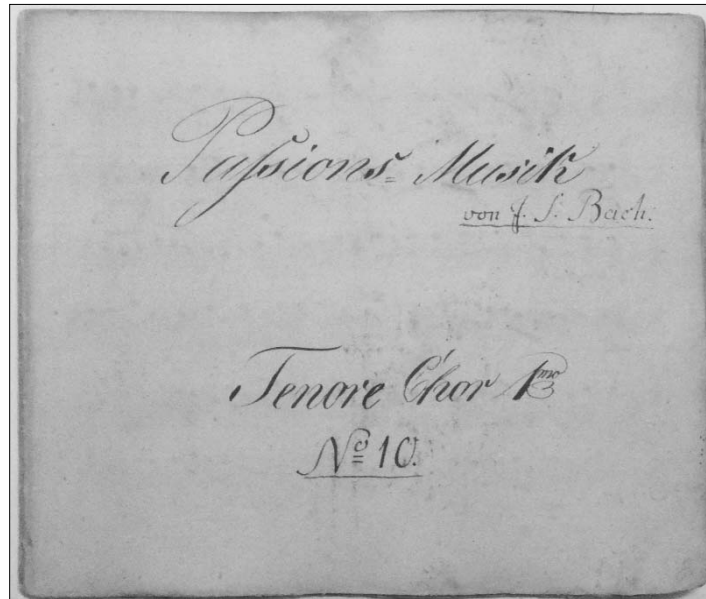 Paſsions= Musik
von J. S. Bach.
Tenore Chor 1mo
No 10.